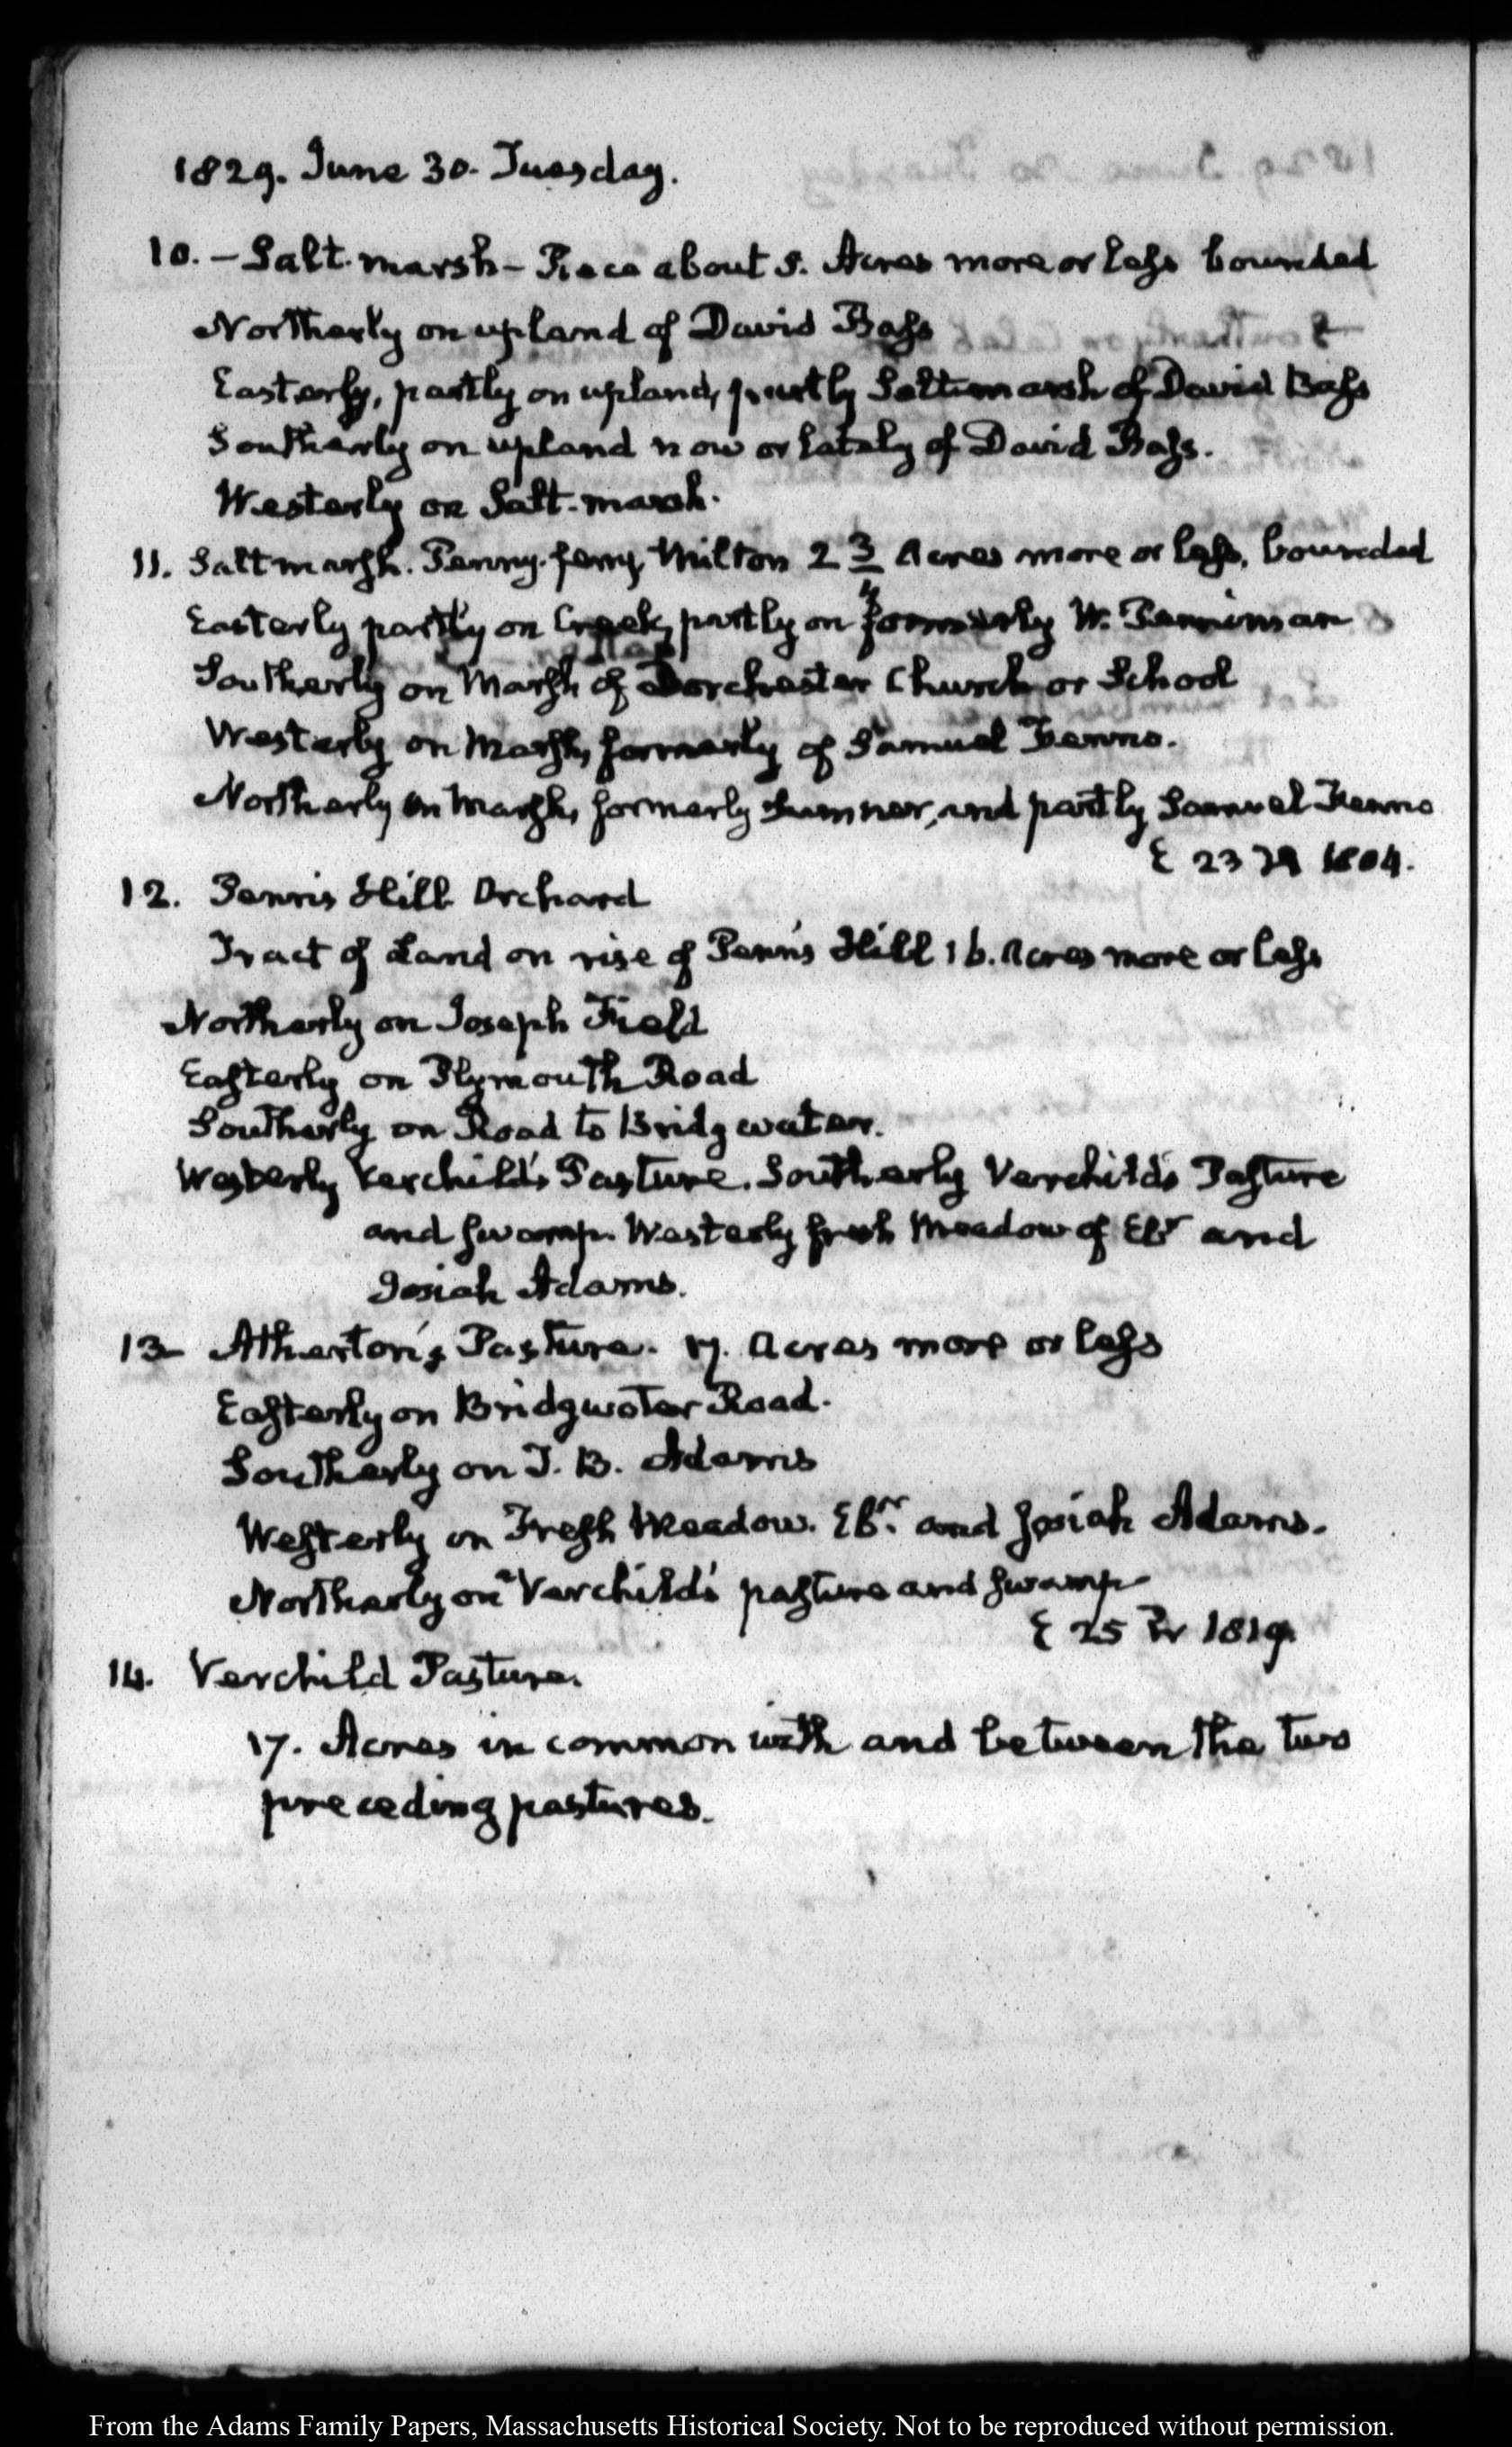 1829. June 30. Tuesday.
10. – Salt-marsh – Piece about 5. Acres more or leſs bounded
Northerly on upland of David Baſs
Easterly, partly on upland, partly Salt-marsh of David Baſs
Southerly on upland now or lately of David Baſs.
Westerly on Salt-marsh.
11. Salt marſh. Penny-ferry, Milton 2 3/4 Acres more or leſs, bounded
Easterly partly on Creek, partly on formerly W. Penniman
Southerly on Marſh of Dorchester Church or School
Westerly on Marſh, formerly of Samuel Fenno.
Northerly on Marſh, formerly Sumner, and partly Samuel Fenno
23 1804.
12. Penn's Hill Orchard
Tract of Land on rise of Penn's Hill 16. Acres more or leſs
Northerly on Joseph Field
Eaſterly on Plymouth Road
Southerly on Road to Bridgwater.
Westerly Verchild's Pasture. Southerly Verchild's Paſture
and Swamp. Westerly fresh Meadow of Ebr and
Josiah Adams.
13– Atherton's Pasture. 17. Acres more or leſs
Eaſterly on Bridgwater Road.
Southerly on T. B. Adams
Weſterly on Freſh Meadow. Ebr. and Josiah Adams.
Northerly on Verchild's paſture and Swamp
25 1819.
14. Verchild Pasture.
17. Acres in common with and between the two
preceding pastures.
From the Adams Family Papers, Massachusetts Historical Society. Not to be reproduced without permission.